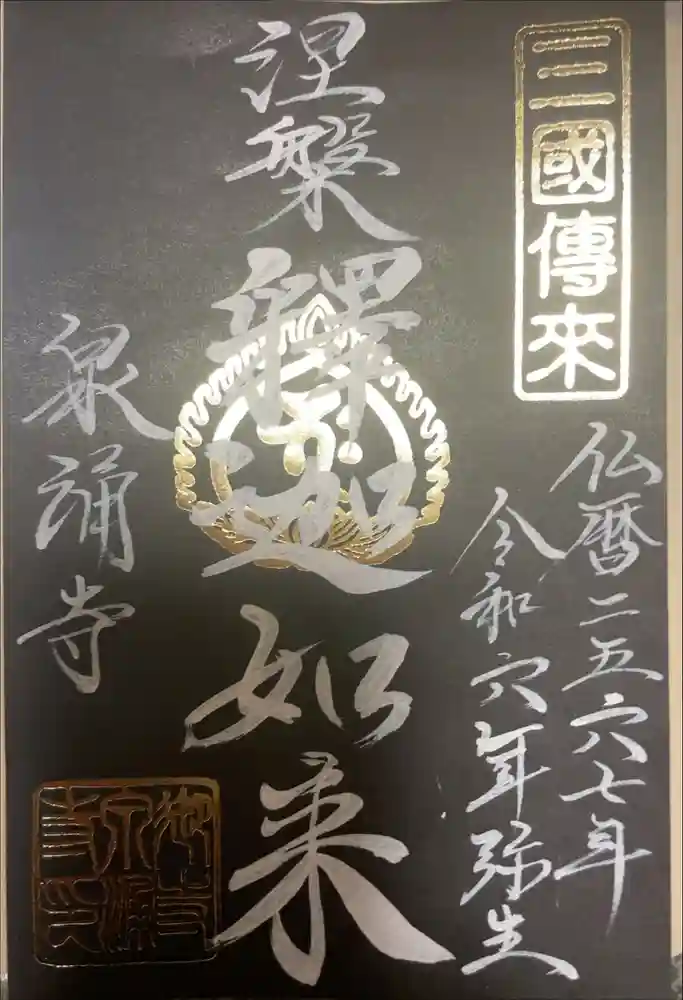 三國傳来
仏暦二五六七年
令和六年弥生
涅槃
釋迦如来
泉涌寺